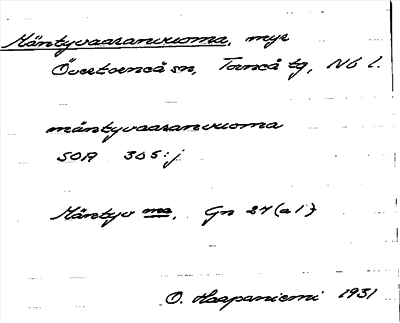 Mäntyvaaranvuoma, myr
Övertorneå sn, Torneå tg, Nb l.
mäntyvaaranvuoma
SOA 305:j
Mäntyv ma, Gn 27 (a 1)
O. Haapaniemi 1931